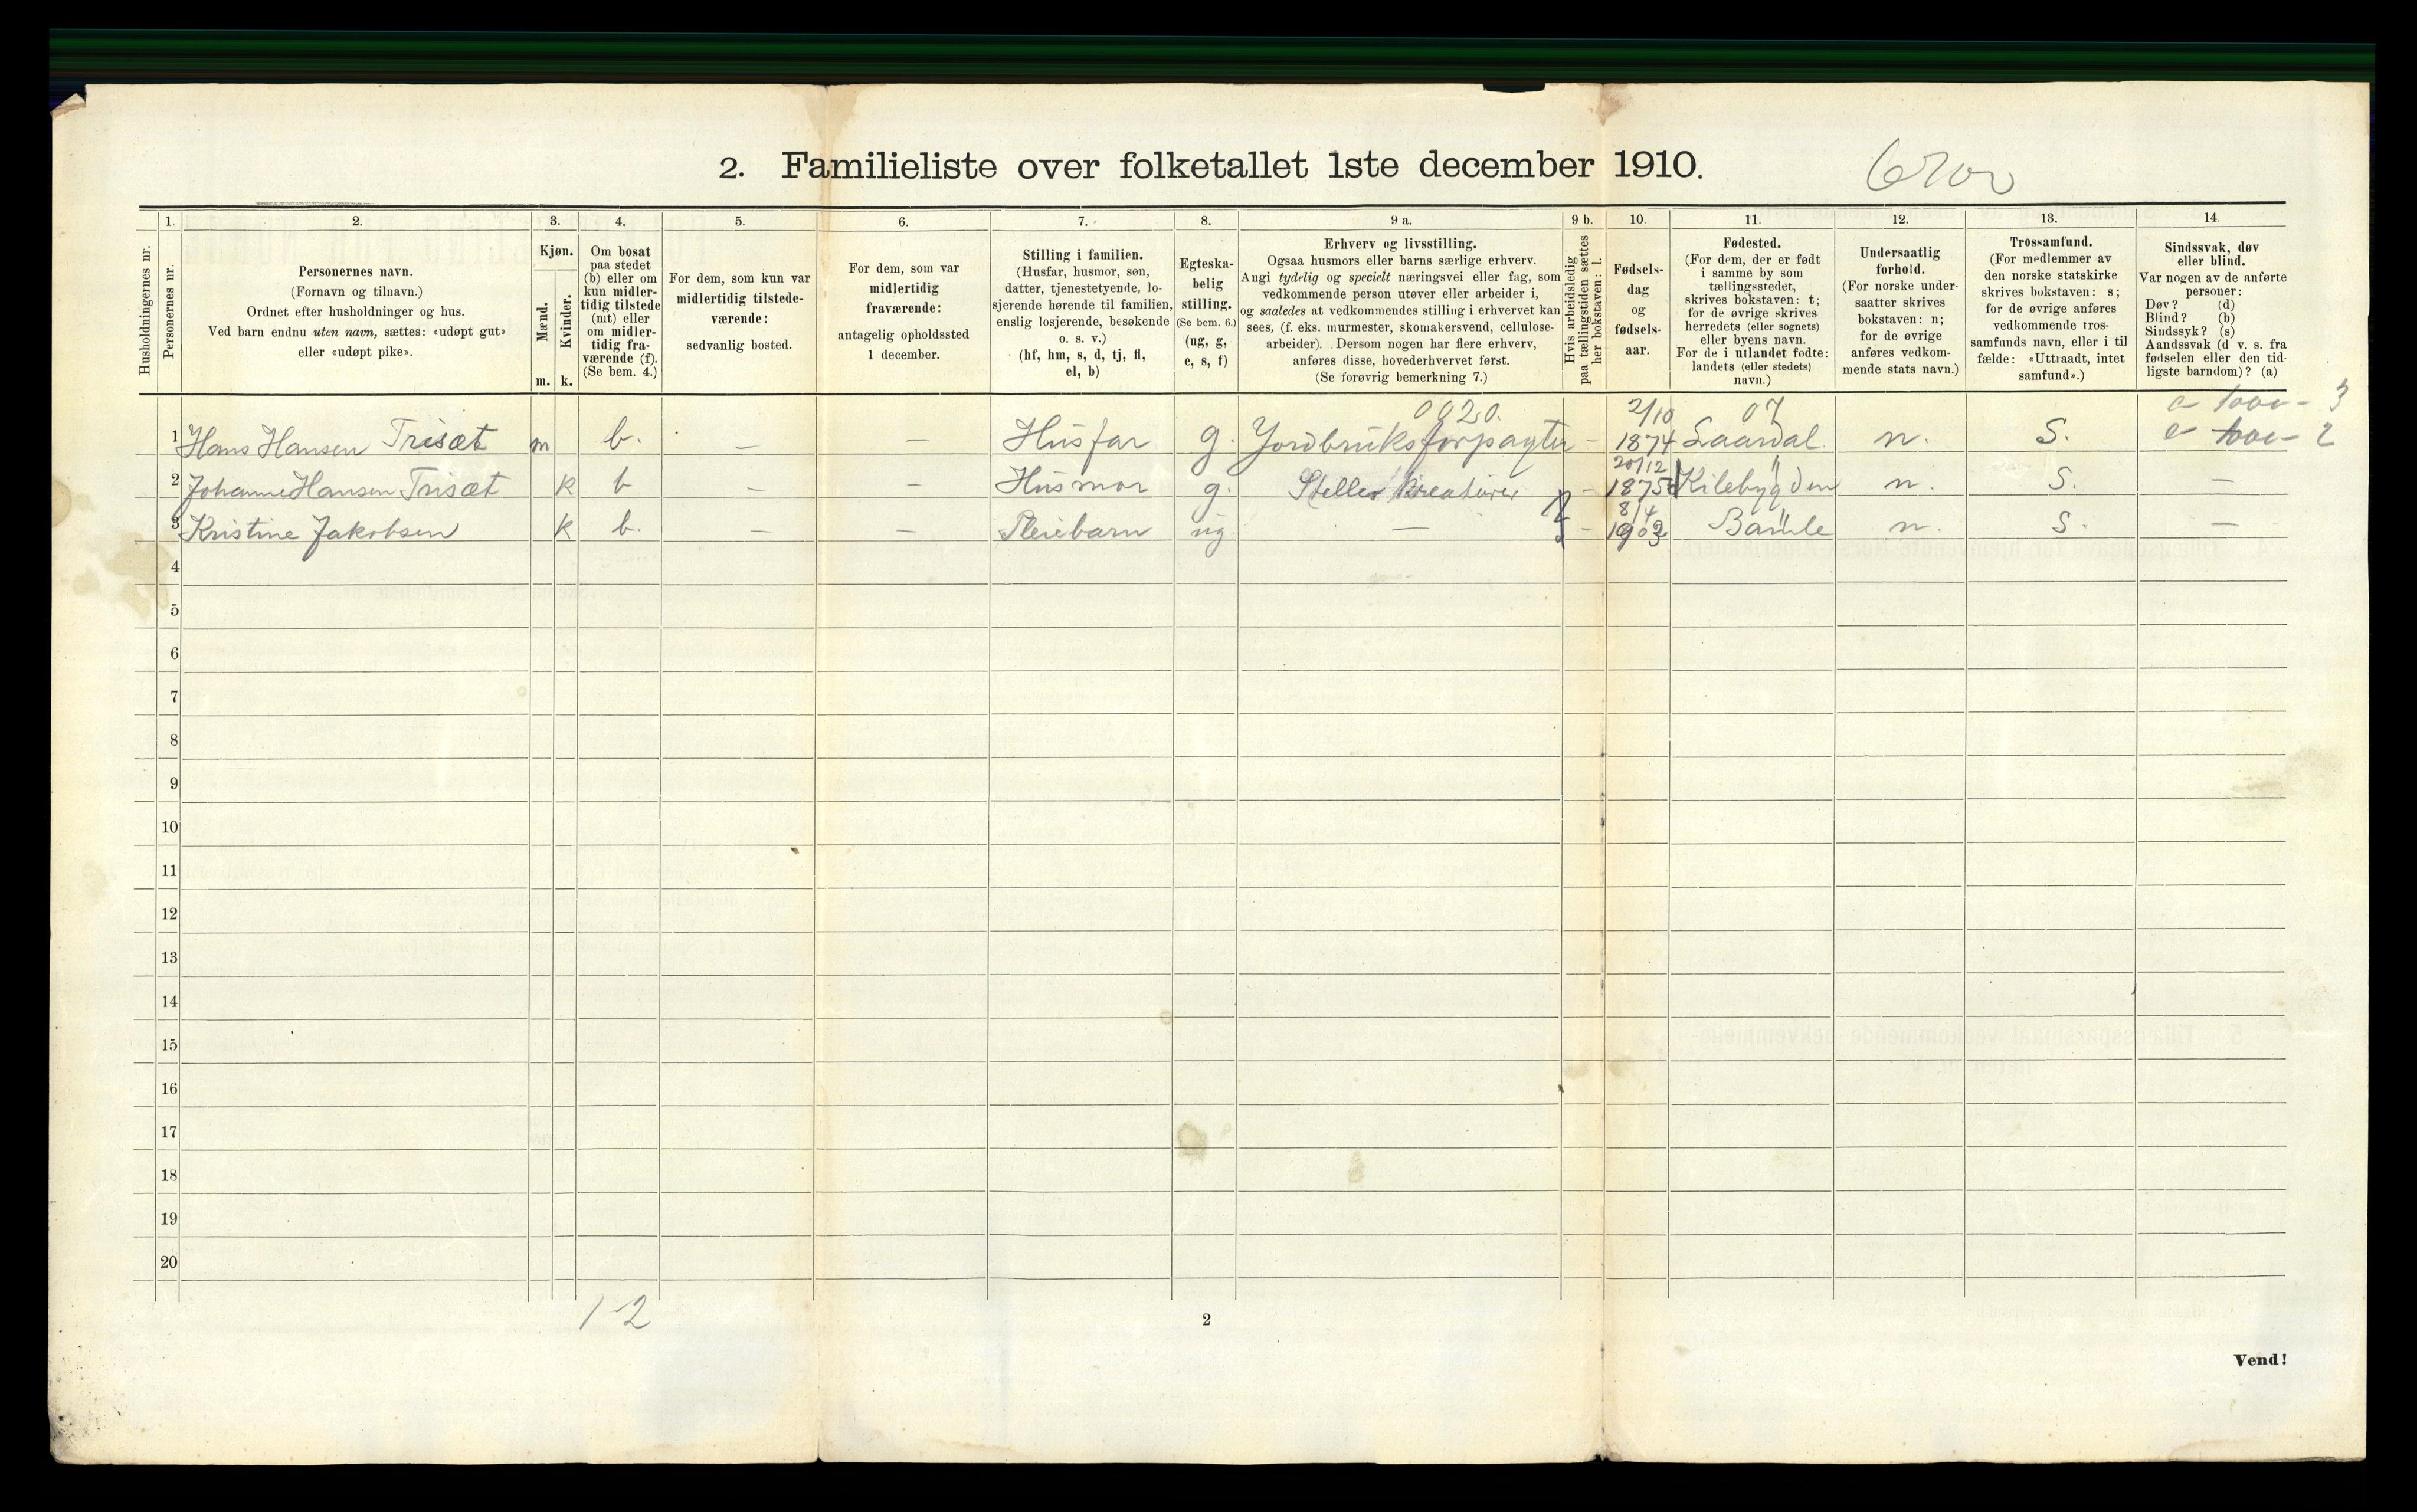 2. Familieliste over folketallet 1ste december 1910.
Husholdningernes nr.
1.
Personernes nr.
2.
Personernes navn.
(Fornavn og tilnavn.)
Ordnet efter husholdninger og hus.
Ved barn endnu uten navn, sættes: «udøpt gut»
eller «udøpt pike».
3.
Kjøn.
Mænd.
Kvinder.
m.
k.
4.
Om bosat
paa stedet
(b) eller om
kun midler-
tidig tilstede
(mt) eller
om midler-
tidig fra-
værende (f).
(Se bem. 4.)
5.
For dem, som kun var
midlertidig tilstede-
værende:
sedvanlig bosted.
6.
For dem, som var
midlertidig
fraværende:
antagelig opholdssted
1 december.
7.
Stilling i familien.
(Husfar, husmor, søn,
datter, tjenestetyende, lo-
sjerende hørende til familien,
enslig losjerende, besøkende
o. s. v.)
(hf, hm, s, d, tj, fl,
el, b)
8.
Egteska-
belig
stilling.
(Se bem. 6.)
(ug, g,
e, s, f)
9 a.
Erhverv og livsstilling.
Ogsaa husmors eller barns særlige erhverv.
Angi tydelig og specielt næringsvei eller fag, som
vedkommende person utøver eller arbeider i,
og saaledes at vedkommendes stilling i erhvervet kan
sees, (f. eks. murmester, skomakersvend, cellulose-
arbeider). Dersom nogen har flere erhverv,
anføres disse, hovederhvervet først.
(Se forøvrig bemerkning 7.)
9 b.
Hvis arbeidsledig
paa tællingstiden sættes
her bokstaven: l.
10.
Fødsels-
dag
og
fødsels-
aar.
11.
Fødested.
(For dem, der er født
i samme by som
tællingsstedet,
skrives bokstaven: t;
for de øvrige skrives
herredets (eller sognets)
eller byens navn.
For de i utlandet fødte:
landets (eller stedets)
navn.)
12.
Undersaatlig
forhold.
(For norske under-
saatter skrives
bokstaven: n;
for de øvrige
anføres vedkom-
mende stats navn.)
13.
Trossamfund.
(For medlemmer av
den norske statskirke
skrives bokstaven: s;
for de øvrige anføres
vedkommende tros-
samfunds navn, eller i til
fælde: «Uttraadt, intet
samfund».)
14.
Sindssvak, døv
eller blind.
Var nogen av de anførte
personer:
Døv? (d)
Blind? (b)
Sindssyk? (s)
Aandssvak (d v. s. fra
fødselen eller den tid-
ligste barndom)? (a)
0920. 2/10 07
1 Hans Hansen Trisæt m b. — — Husfar g. Jordbruksforpagter - 1874 Laardal n. S.
2 Johanne Hansen Trisæt k b — — Husmor g. Steller kreaturer - 20/12 1875 Kilebygden n. S. —
3 Kristine Jakobsen k b. — — Pleiebarn ug — - 8/4 1903 Bamle n. S. —
4
5
6
7
8
9
10
11
12
13
14
15
16
17
18
19
20
1-2
2
Vend!